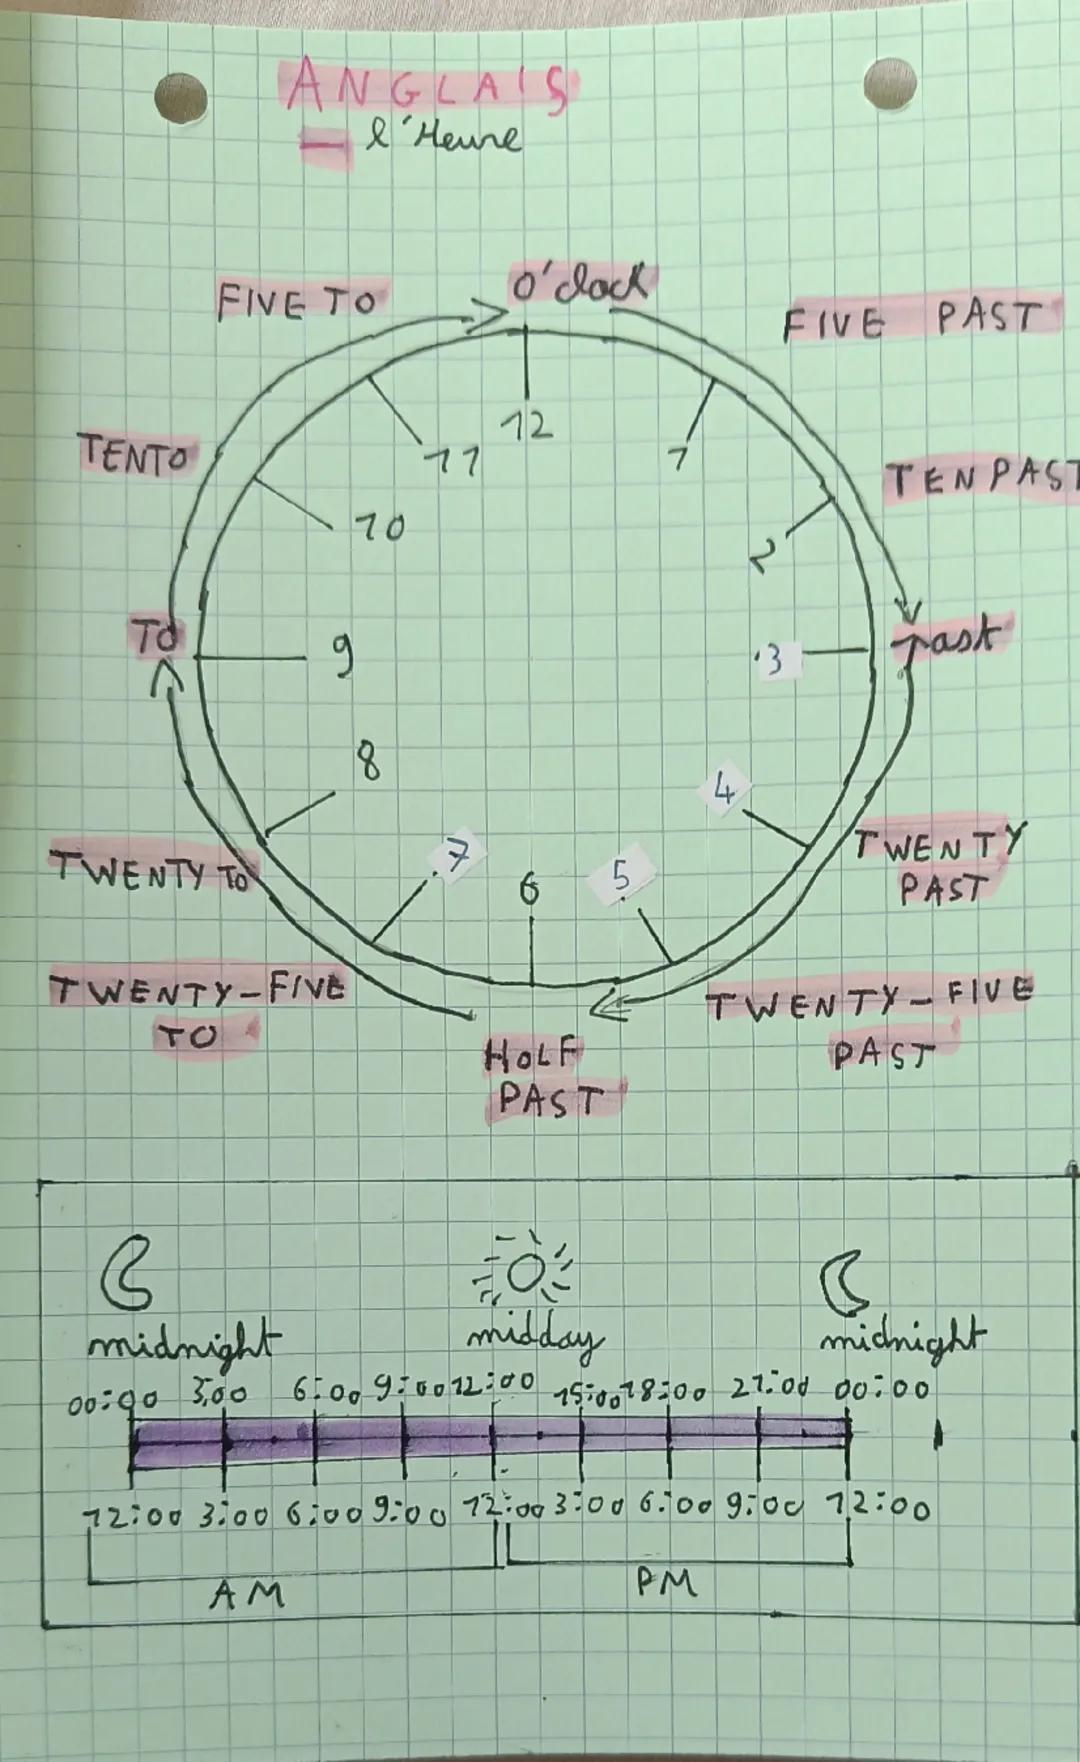 ANGLAIS
— l'Heure
o'clock
FIVE TO
FIVE PAST
12
11
1
TENTO
TEN PAST
10
2
TO
9
.3
Past
8
4
.7
6
5.
TWENTY TO
TWENTY
PAST
TWENTY-FIVE
TO
TWENTY-FIVE
PAST
HOLF
PAST
midnight midday midnight
00:00 3:00 6:00 9:00 12:00 15:00 18:00 21:00 00:00
12:00 3:00 6:00 9:00 12:00 3:00 6:00 9:00 12:00
AM PM